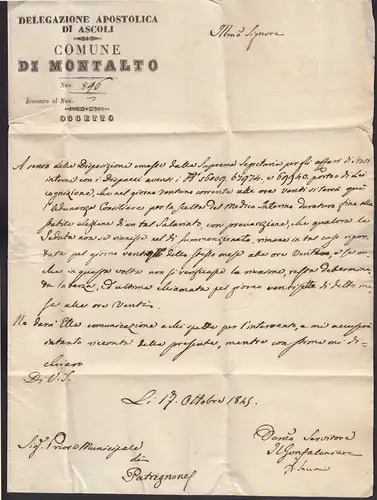 DELEGAZIONE APOSTOLICA
DI ASCOLI
COMUNE
DI MONTALTO
Num. 896
Riscontro al Num.
OGGETTO
Illmo Signore
A senso delle Disposizioni emesse dalla Suprema Segretaria per gli affari di Stato
interni con i Dispacci aventi i N. 56009. 61974. e 69940. porto a di Lei
cognizione, che nel giorno ventuno corrente alle ore venti si terrà quì
l'adunanza Consiliare per la scelta del Medico Interino duraturo fino alla
stabile elezione di un tal Salariato, con prevenzione, che qualora la
Seduta non si riunisse nel dì summenzionato, rimane in tal caso ripor-
tata pel giorno dello stesso mese alle ore Venti, e se an-
che in questa volta non si verificasse la riunione, resta determina-
ta la terza, ed ultima chiamata pel giorno ventisette di detto me-
se alle ore Venti.
Ne darà Ella comunicazione a chi spetta per l'intervento, e mi accuserà
intanto riscontro della presente, mentre con stima mi di-
chiaro
Di V. S.
Li 17. Ottobre 1845.
Sig. Priore Municipale
di
Patrignone
Devmo Servitore
Il Gonfaloniere